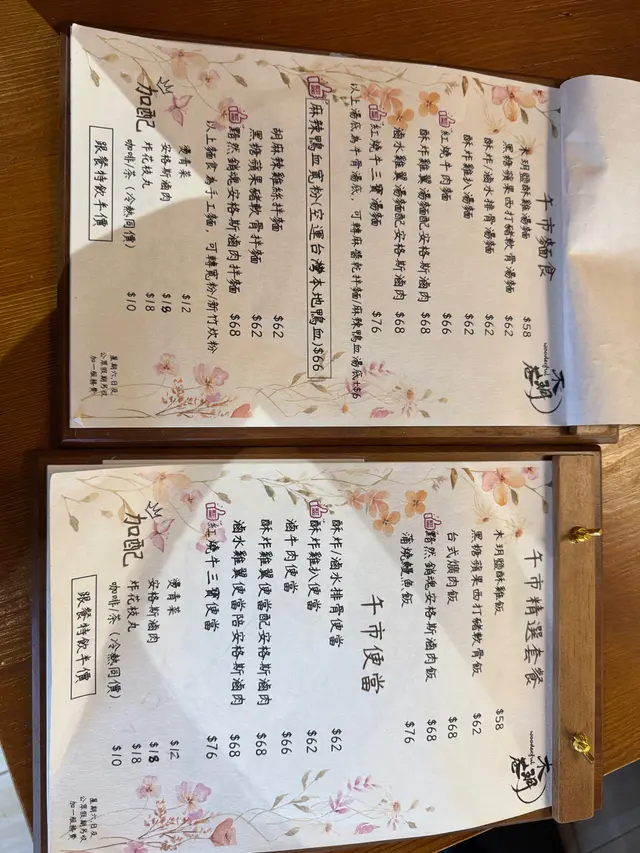 午市麵食
木玥鹽酥雞湯麵 $58
黑糖蘋果西打豬軟骨湯麵 $62
酥炸/滷水排骨湯麵 $62
酥炸雞扒湯麵 $62
紅燒牛肉麵 $66
酥炸雞翼湯麵配安格斯滷肉 $68
滷水雞翼湯麵配安格斯滷肉 $68
紅燒牛三寶湯麵 $76
以上湯底為牛骨湯底，可轉麻醬乾拌麵/麻辣鴨血湯底+$6
麻辣鴨血寬粉(空運台灣本地鴨血)$66
胡麻辣雞絲拌麵 $62
黑糖蘋果豬軟骨拌麵 $62
黯然銷魂安格斯滷肉拌麵 $68
以上麵食為手工麵，可轉寬粉/新竹炊粉
加配
燙青菜 $12
安格斯滷肉 $18
炸花枝丸 $18
咖啡/茶（冷熱同價） $10
跟餐特飲半價
星期六日及
公眾假期另收
加一服務費
wonderful
木玥
午市精選套餐
木玥鹽酥雞飯 $58
黑糖蘋果西打豬軟骨飯 $62
台式爌肉飯 $68
黯然銷魂安格斯滷肉飯 $68
蒲燒鰻魚飯 $76
午市便當
酥炸/滷水排骨便當 $62
酥炸雞扒便當 $62
滷牛肉便當 $66
酥炸雞翼便當配安格斯滷肉 $68
滷水雞翼便當陪安格斯滷肉 $68
紅燒牛三寶便當 $76
加配
燙青菜 $12
安格斯滷肉 $18
炸花枝丸 $18
咖啡/茶（冷熱同價） $10
跟餐特飲半價
星期六日及
公眾假期另收
加一服務費
wonderful
木玥